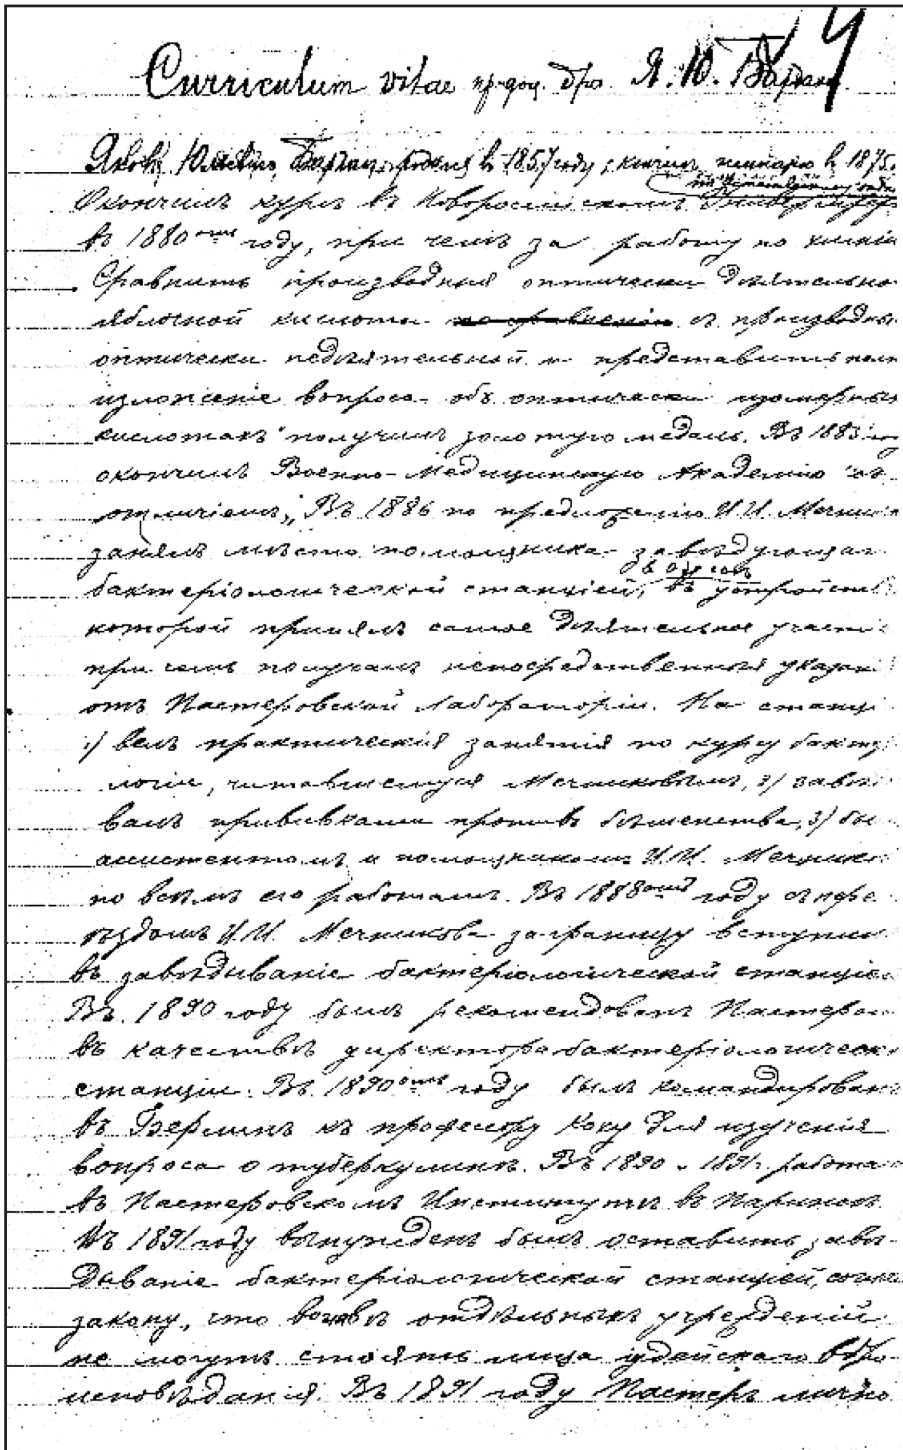 4
Curriculum vitae пр-доц. д-ра Я. Ю. Бардаха
Яковъ Юльевичъ Бардахъ, родился въ 1857 году; кончилъ гимназію въ 1875.
Окончилъ курсъ въ Новороссійскомъ Университетѣ
въ 1880омъ году, при чемъ за работу по химіи
Сравнить производныя оптически дѣятельно
яблочной кислоты по сравненію съ производны
оптически недѣятельной и представить полн
изложеніе вопроса объ оптически изомерных
кислотахъ" получилъ золотую медаль. Въ 1883
окончилъ Военно-Медицинскую Академію съ
отличіемъ. Въ 1886 по предложенію И. И. Мечник
занялъ мѣсто помощника завѣдующаг
въ Одессѣ
бактеріологической станціей, въ устройств
которой принялъ самое дѣятельное участі
при чемъ получалъ непосредственныя указан
отъ Пастеровской Лабораторіи. На станці
1) велъ практическія занятія по курсу бактер
логіи, читавшемуся Мечниковымъ, 2) завѣд
валъ прививками противъ бѣшенства, 3) бы
ассистентомъ и помощникомъ И. И. Мечник
по всѣмъ его работамъ. Въ 1888омъ году съ пере
ѣздомъ И. И. Мечникова заграницу вступил
въ завѣдываніе бактеріологической станціе
Въ 1890 году былъ рекомендованъ Пастеро
въ качествѣ директора бактеріологическ
станціи. Въ 1890омъ году былъ командирован
въ Берлинъ къ профессору Коху для изученія
вопроса о туберкулинѣ. Въ 1890 и 1891 г. работа
въ Пастеровскомъ Институтѣ въ Парижѣ
Въ 1891 году вынужденъ былъ оставить завѣ
дываніе бактеріологической станціей, согл
закону, что во главѣ отдѣльныхъ учрежденій
не могутъ стоять лица іудейскаго вѣро
исповѣданія. Въ 1891 году Пастеръ лично